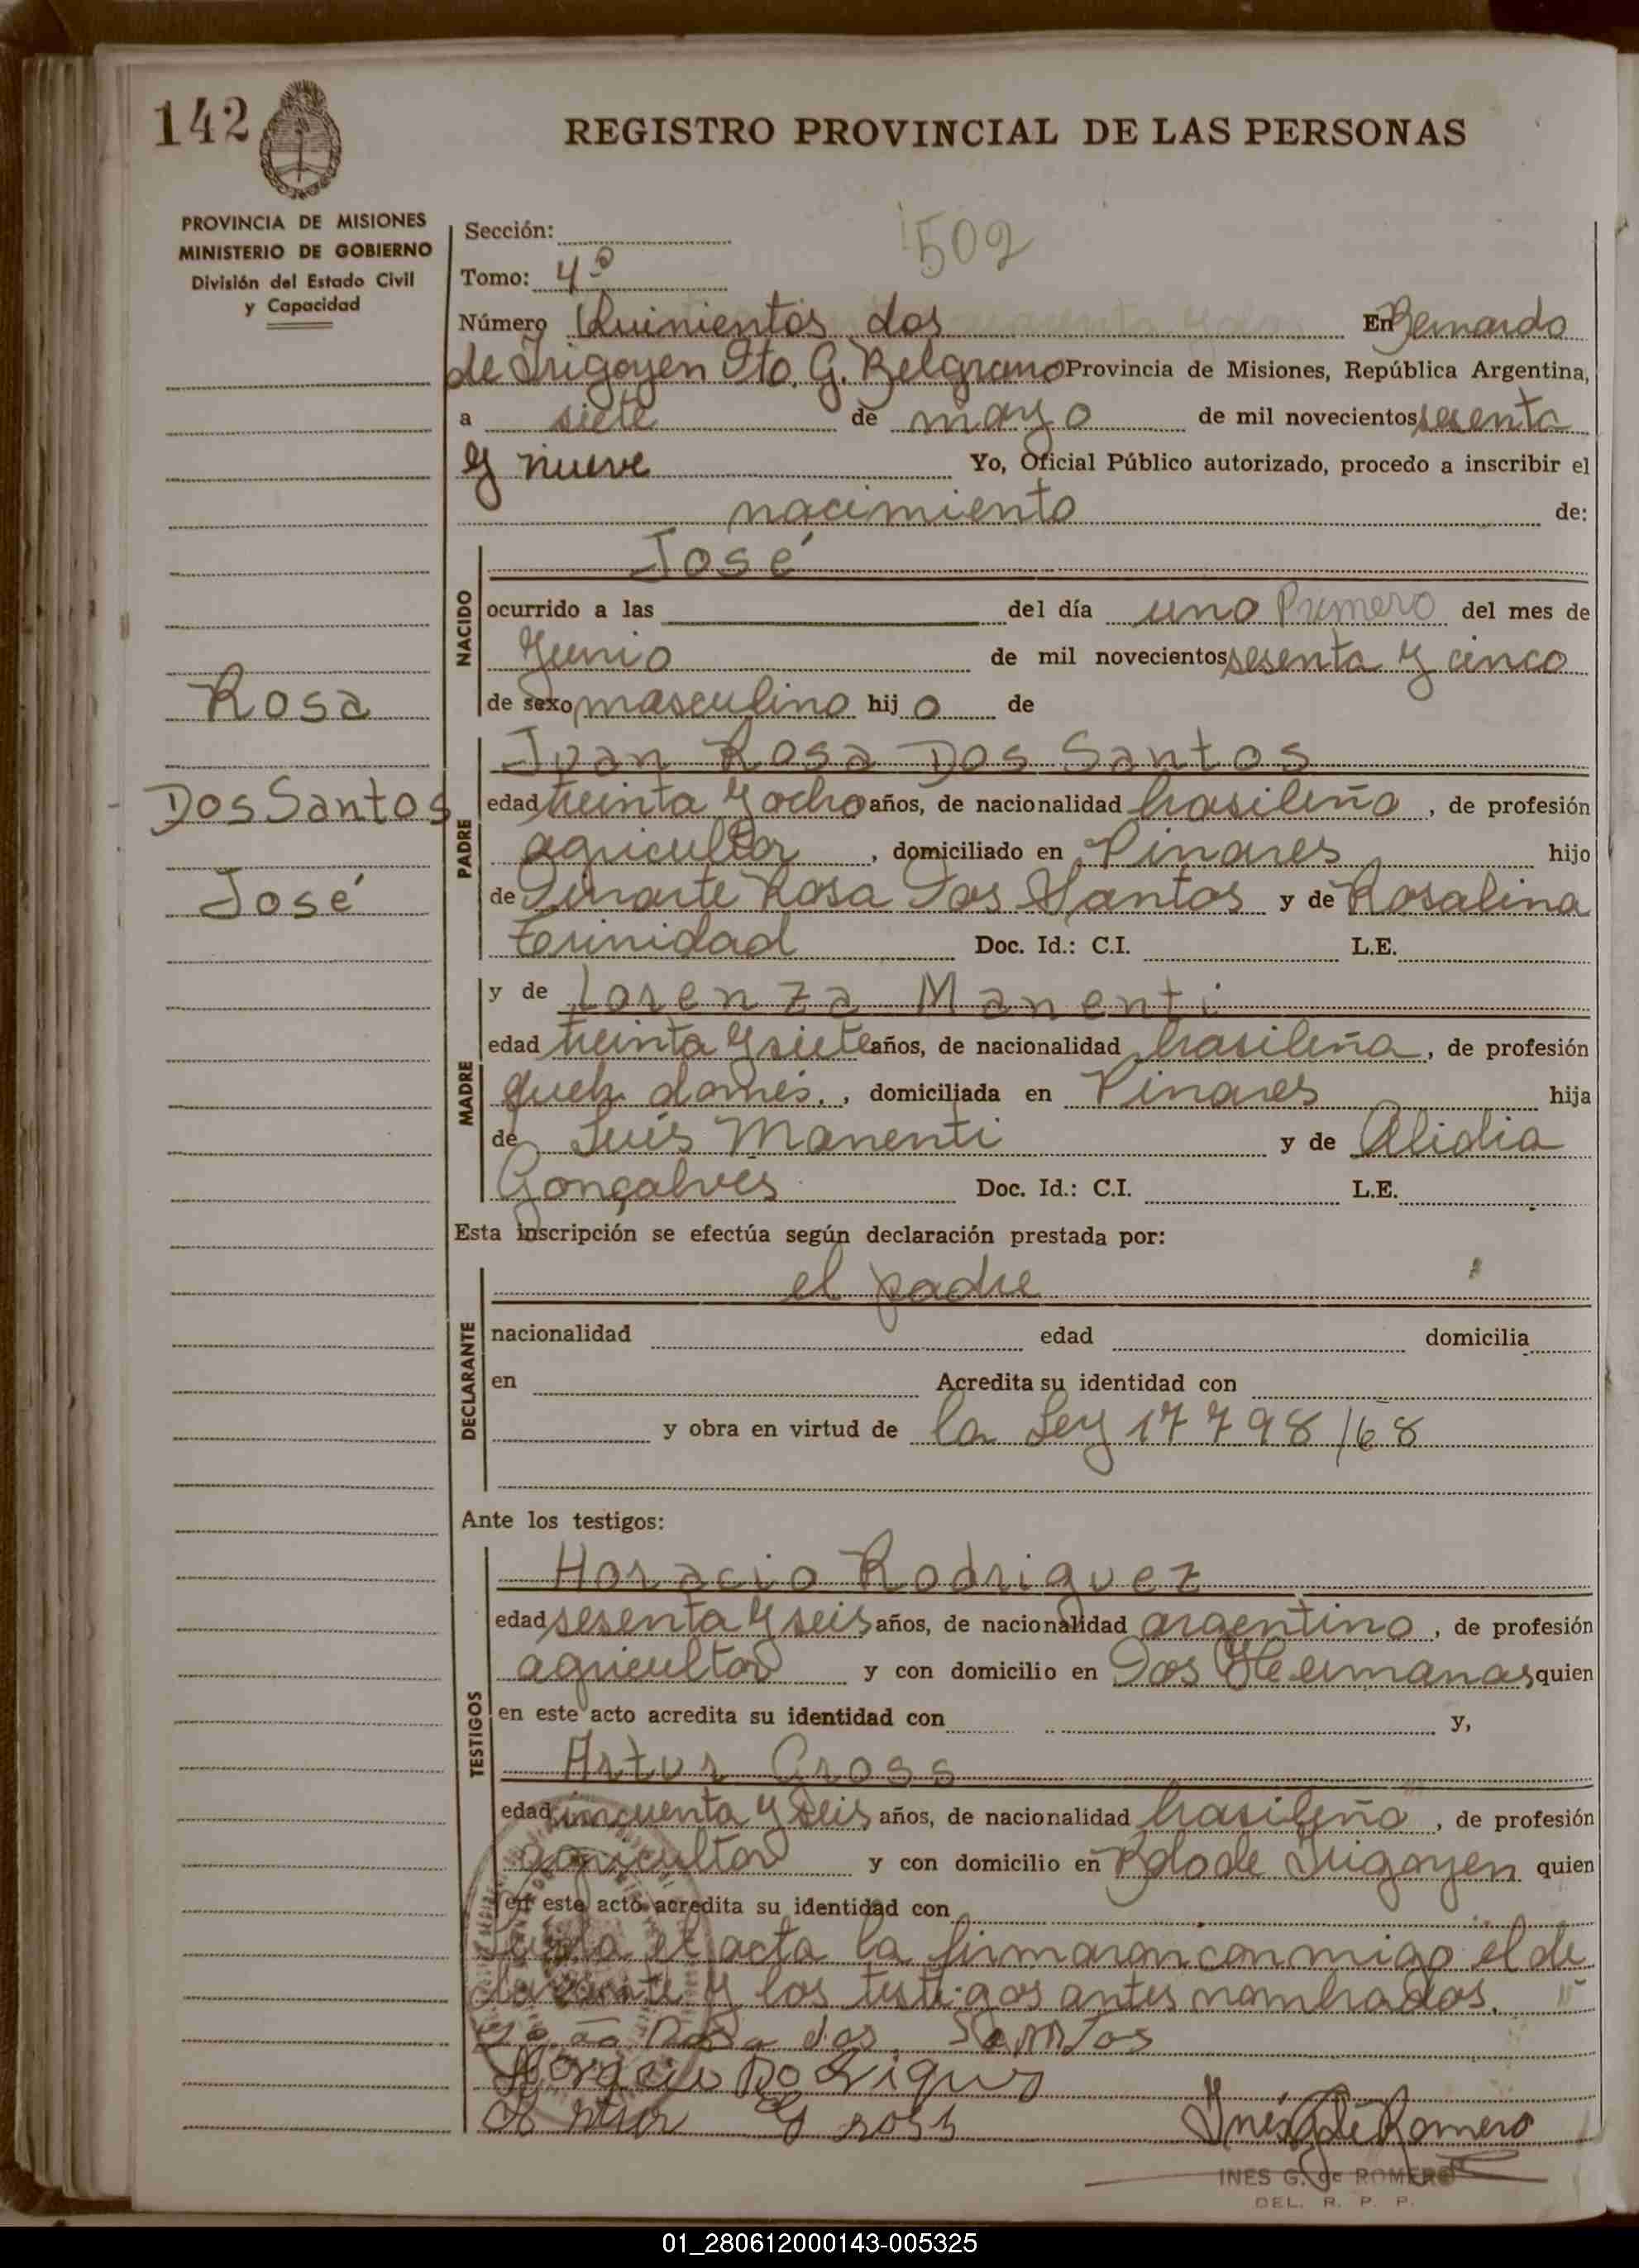 142
REGISTRO PROVINCIAL DE LAS PERSONAS
PROVINCIA DE MISIONES
MINISTERIO DE GOBIERNO
División del Estado Civil
y Capacidad
Rosa
Dos Santos
José
502
Sección:
Tomo: 4º
Número Quinientos dos En Bernardo
de Irigoyen Dto. G. Belgrano Provincia de Misiones, República Argentina,
a siete de mayo de mil novecientos sesenta
y nueve Yo, Oficial Público autorizado, procedo a inscribir el
nacimiento de:
NACIDO
José
ocurrido a las del día uno Primero del mes de
Junio de mil novecientos sesenta y cinco
de sexo masculino hijo de
PADRE
Juan Rosa Dos Santos
edad treinta y ocho años, de nacionalidad brasileña, de profesión
agricultor, domiciliado en Pinares hijo
de Rosa Dos Santos y de Rosalina
Terinidad Doc. Id.: C.I. L.E.
MADRE
y de Lorenza Manenti
edad treinta y siete años, de nacionalidad brasileña, de profesión
queh. domés., domiciliada en Pinares hija
de Luís Manenti y de Alidia
Gonçalves Doc. Id.: C.I. L.E.
Esta inscripción se efectúa según declaración prestada por:
DECLARANTE
el padre
nacionalidad edad domicilia
en Acredita su identidad con
y obra en virtud de la Ley 17798/68
Ante los testigos:
TESTIGOS
Horacio Rodriguez
edad sesenta y seis años, de nacionalidad argentino, de profesión
agricultor y con domicilio en Dos Hermanas quien
en este acto acredita su identidad con y,
Artur Gross
edad cincuenta y seis años, de nacionalidad brasileño, de profesión
agricultor y con domicilio en Bdo de Irigoyen quien
en este acto acredita su identidad con
el acta la firmaron conmigo el de
clarante y los testigos antes nombrados.
Rosa dos Santos
Horacio Rodrigues
Artur Gross
Inés G. de Romero
INES G. de ROMERO
DEL. R. P. P.
01_280612000143-005325